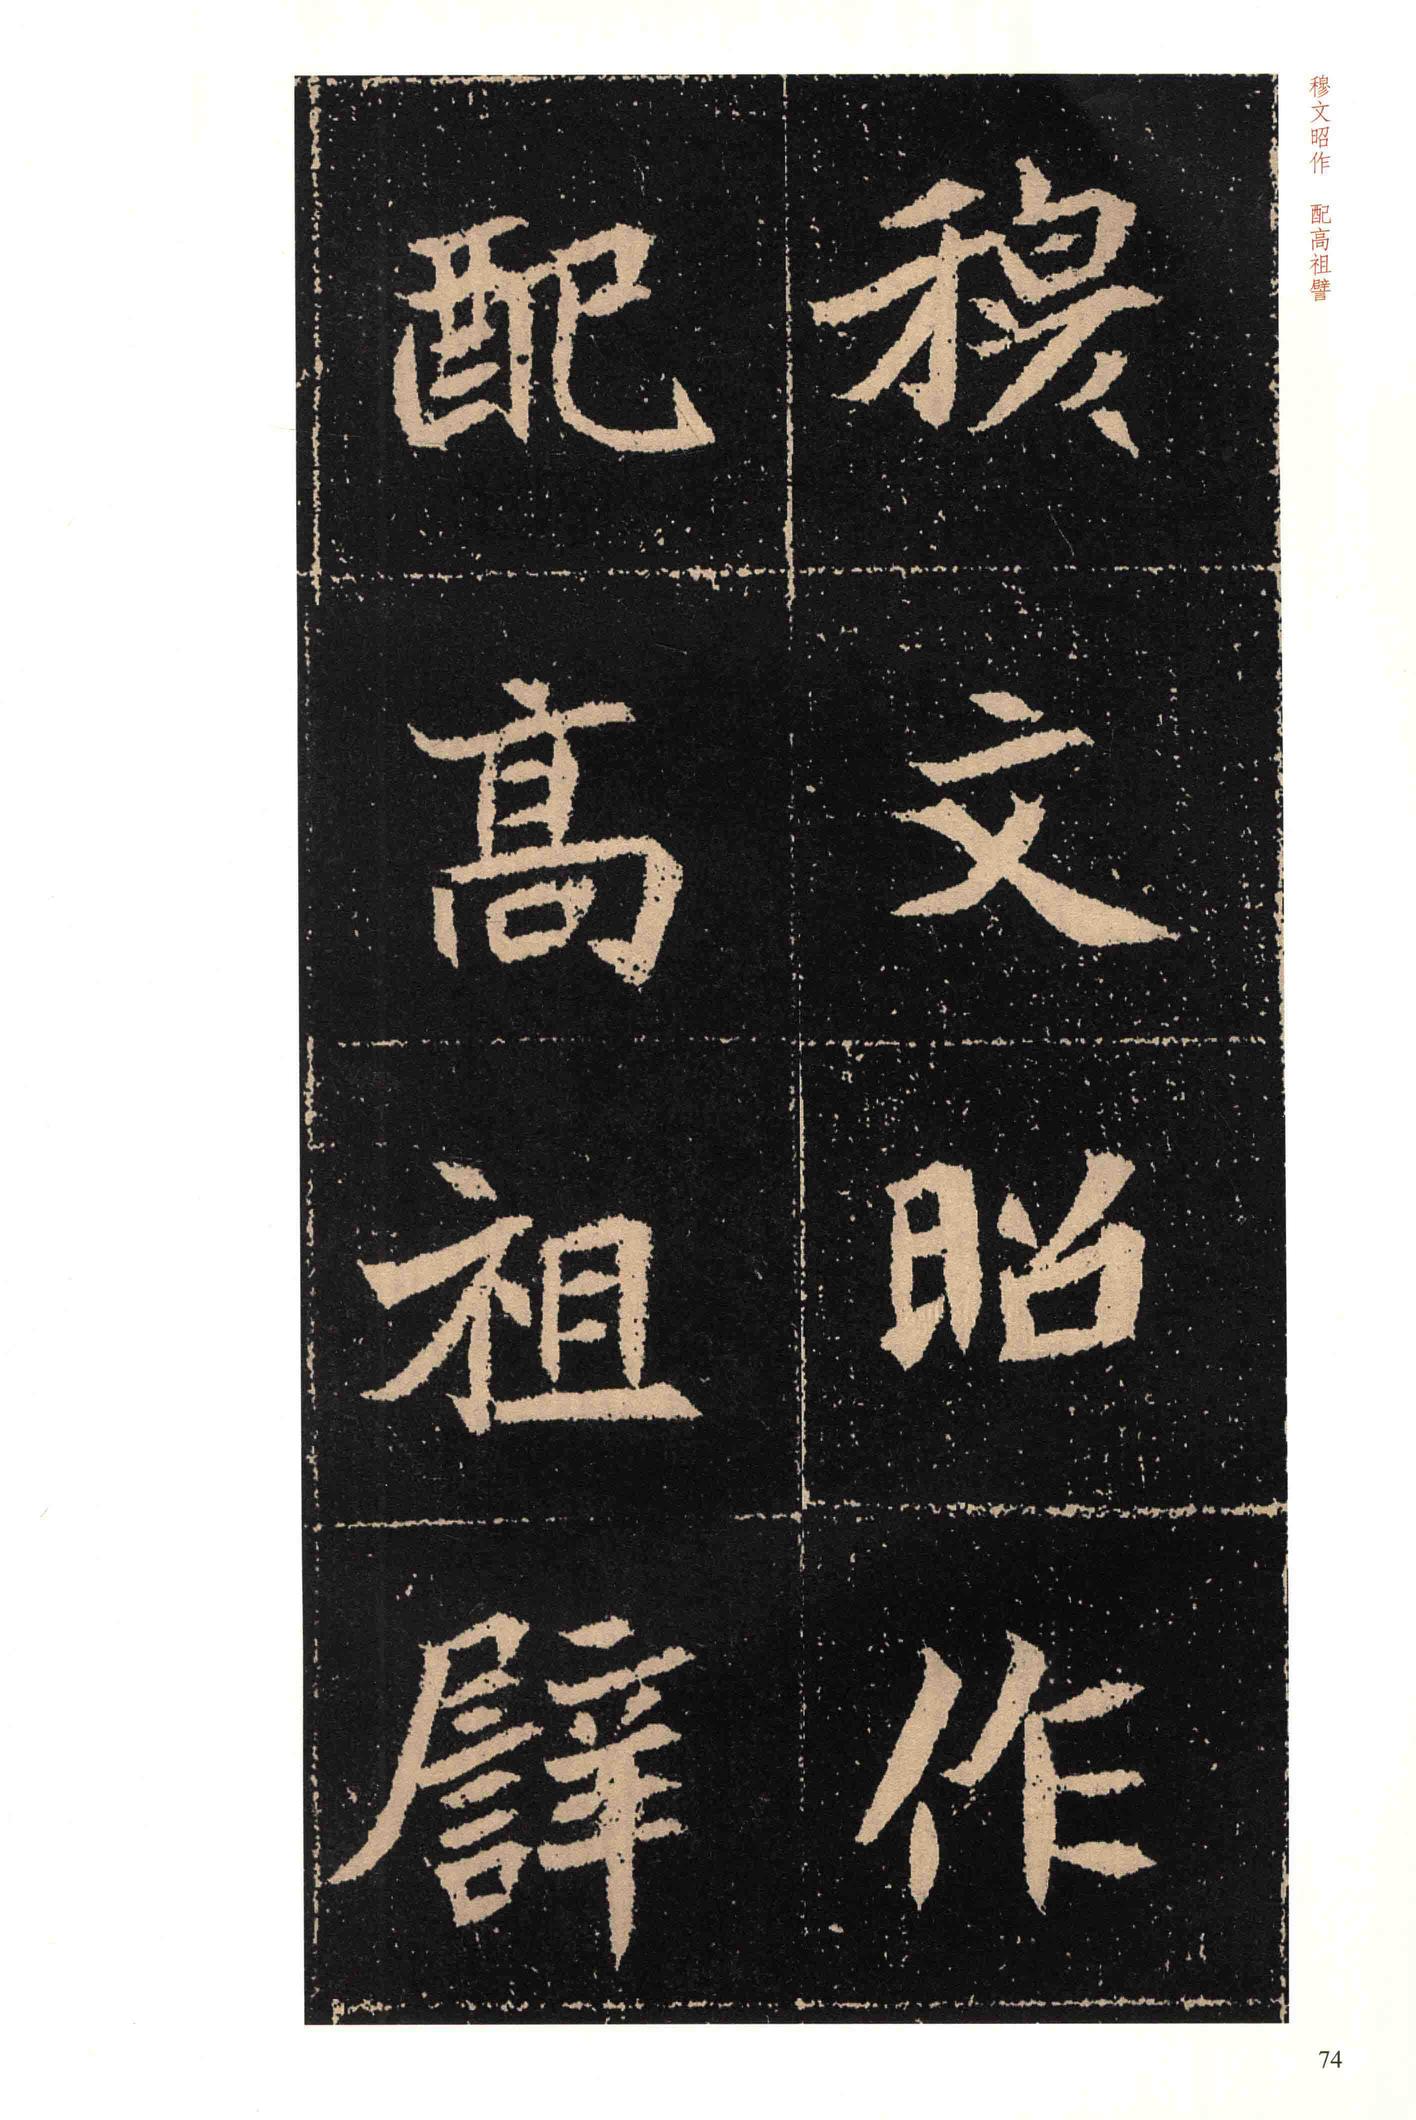 穆文昭作 配高祖譬
穆文昭作
配高祖譬
74